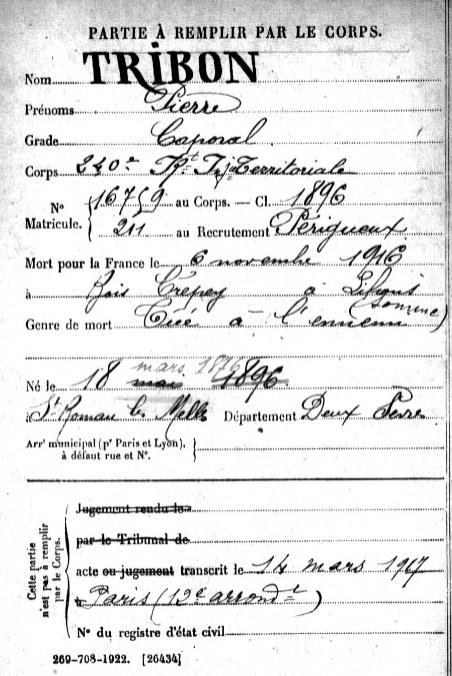 PARTIE À REMPLIR PAR LE CORPS.
Nom TRIBON
Prénoms Pierre
Grade Caporal
Corps 240e Rt Ie Territoriale
No Matricule. 16759 au Corps. — Cl. 1896
211 au Recrutement Périgueux
Mort pour la France le 6 novembre 1916
à Bois Crépey à Lihons
(Somme)
Genre de mort Tué à l'ennemi
mars 1876
Né le 18 mai 1896
à St Roman les Melle Département Deux Sèvres
Arrt municipal (pr Paris et Lyon),
à défaut rue et No.
Cette partie n'est pas à remplir par le Corps.
Jugement rendu le
par le Tribunal de
acte ou jugement transcrit le 14 mars 1917
à Paris (12e arrondt)
No du registre d'état civil
269-708-1922. [26434]